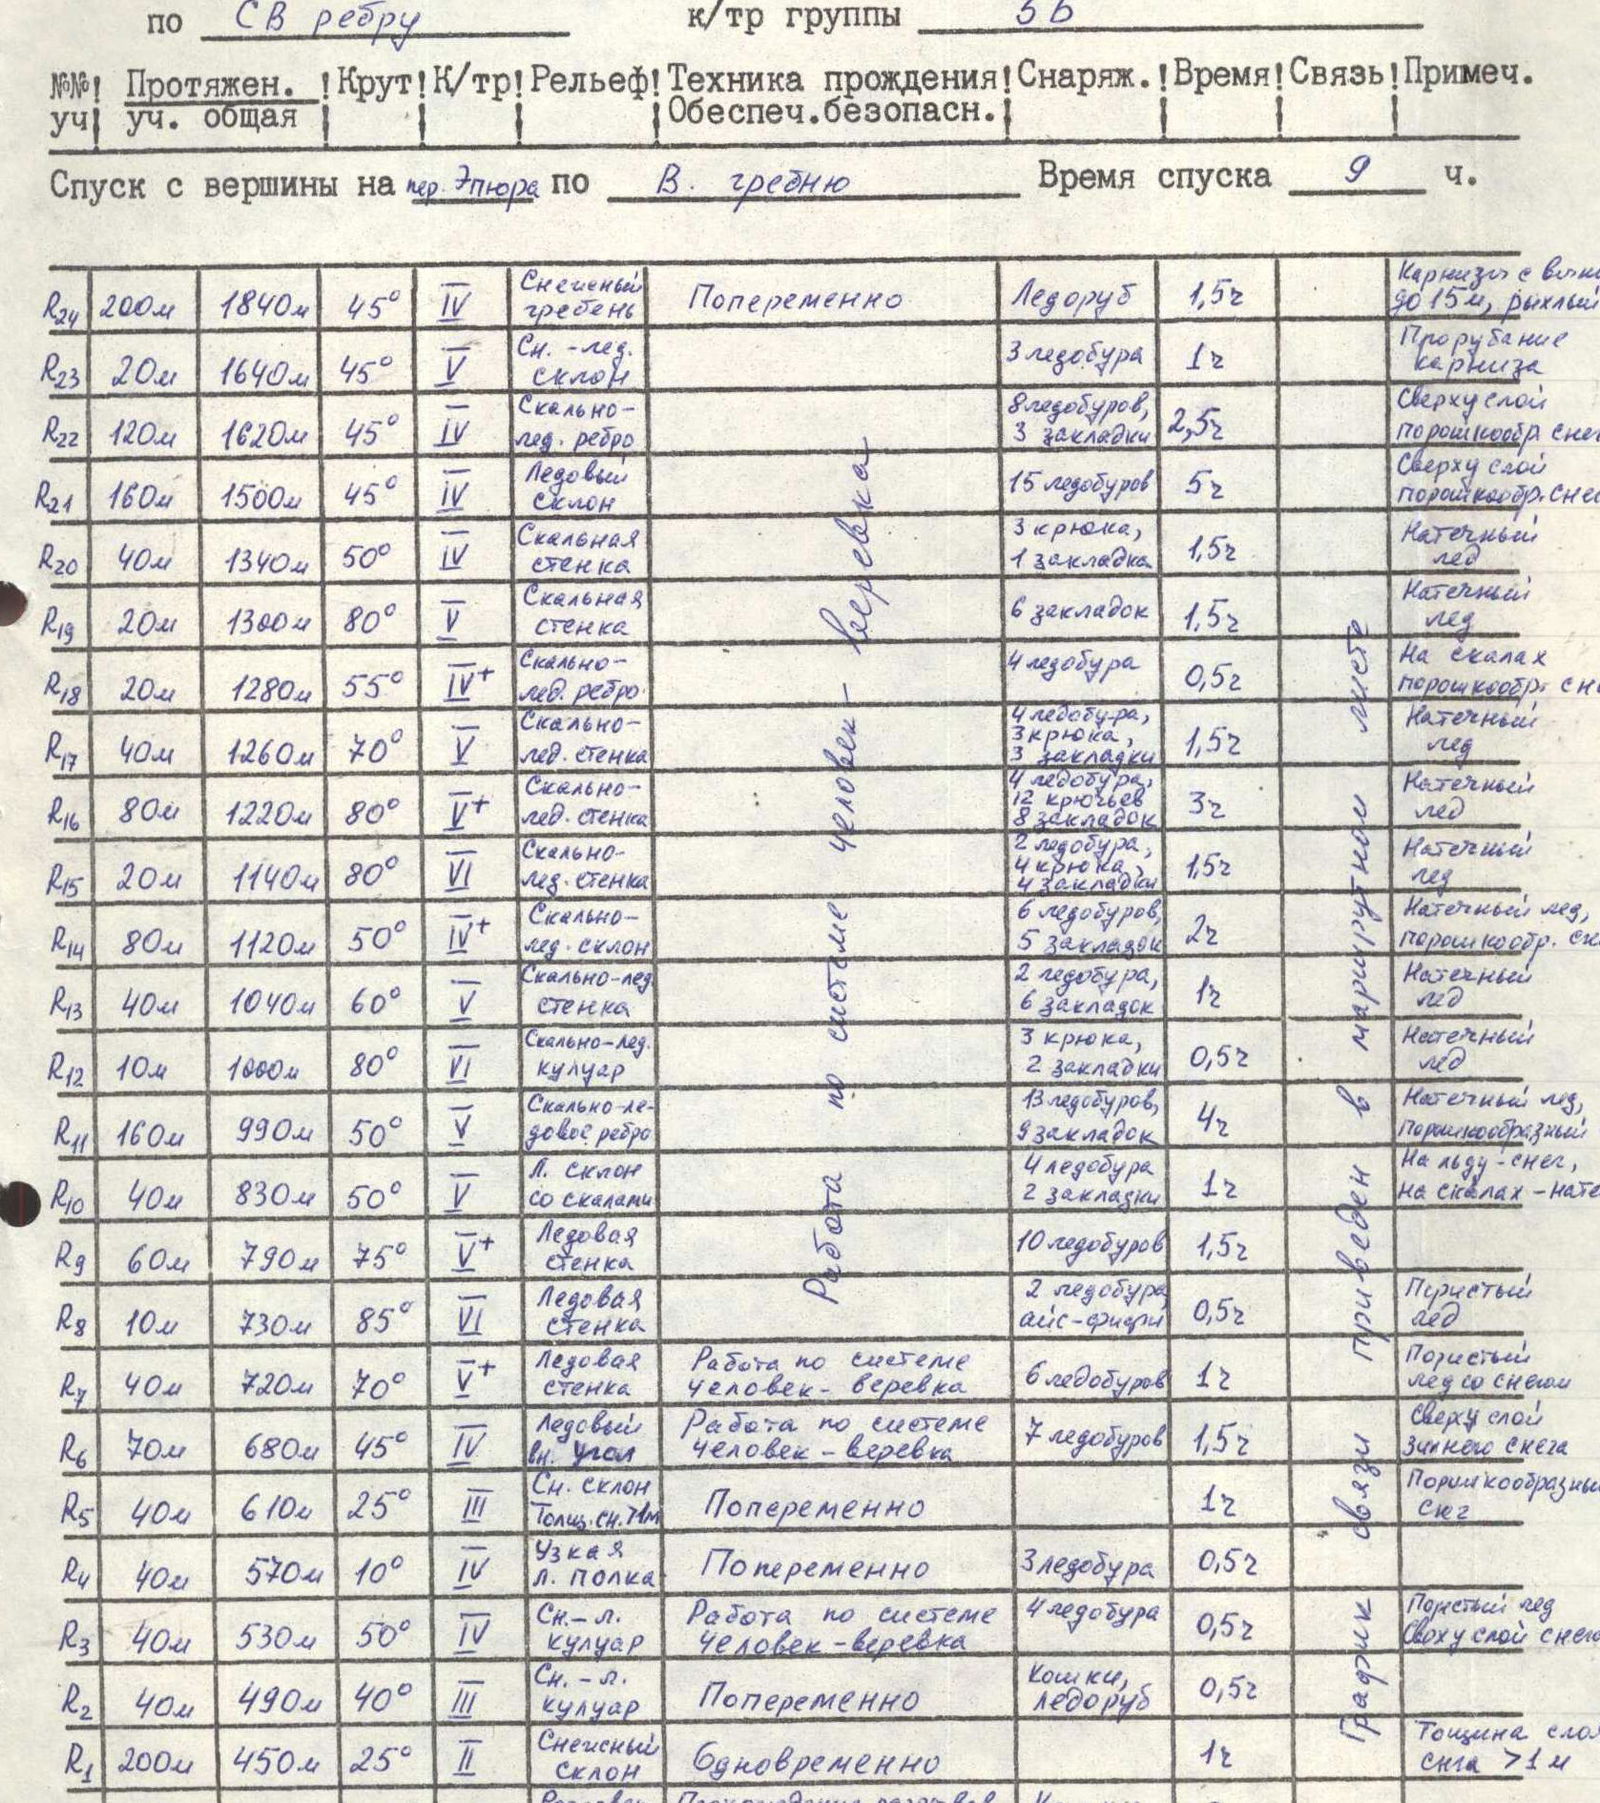 по СВ ребру к/тр группы 5Б
№№! Протяжен. !Крут!К/тр!Рельеф!Техника прождения!Снаряж.!Время!Связь!Примеч.
уч! уч. общая ! ! ! !Обеспеч.безопасн.! ! ! !
Спуск с вершины на пер. Эпюра по В. гребню Время спуска 9 ч.
R24 200м 1840м 45° IV Снежный гребень Попеременно Ледоруб 1,5ч Карнизы с до 15м, рыхлый
R23 20м 1640м 45° V Сн. -лед. склон 3 ледобура 1ч Прорубание карниза
R22 120м 1620м 45° IV Скально-лед. ребро 8 ледобуров, 3 закладки 2,5ч Сверху слой порошкообр. снег
R21 160м 1500м 45° IV Ледовый склон 15 ледобуров 5ч Сверху слой порошкообр. снег
R20 40м 1340м 50° IV Скальная стенка 3 крюка, 1 закладка 1,5ч Натечный лед
R19 20м 1300м 80° V Скальная стенка 6 закладок 1,5ч Натечный лед
R18 20м 1280м 55° IV+ Скально-лед. ребро 4 ледобура 0,5ч На скалах порошкообр. сн
R17 40м 1260м 70° V Скально-лед. стенка 4 ледобура, 3 крюка, 3 закладки 1,5ч Натечный лед
R16 80м 1220м 80° V+ Скально-лед. стенка 4 ледобура, 12 крючьев 8 закладок 3ч Натечный лед
R15 20м 1140м 80° VI Скально-лед. стенка 2 ледобура, 4 крюка, 4 закладки 1,5ч Натечный лед
R14 80м 1120м 50° IV+ Скально-лед. склон 6 ледобуров, 5 закладок 2ч Натечный лед, порошкообр. сн
R13 40м 1040м 60° V Скально-лед. стенка 2 ледобура, 6 закладок 1ч Натечный лед
R12 10м 1000м 80° VI Скально-лед. кулуар 3 крюка, 2 закладки 0,5ч Натечный лед
R11 160м 990м 50° V Скально-ледовое ребро 13 ледобуров, 9 закладок 4ч Натечный лед, порошкообразный
R10 40м 830м 50° V Л. склон со скалами 4 ледобура 2 закладки 1ч На льду - снег, на скалах - нате
R9 60м 790м 75° V+ Ледовая стенка 10 ледобуров 1,5ч
R8 10м 730м 85° VI Ледовая стенка 2 ледобура айс-фифи 0,5ч Пористый лед
Работа по системе человек - веревка
R7 40м 720м 70° V+ Ледовая стенка Работа по системе человек - веревка 6 ледобуров 1ч Пористый лед со снегом
R6 70м 680м 45° IV Ледовый вн. угол Работа по системе человек - веревка 7 ледобуров 1,5ч Сверху слой зимнего снега
R5 40м 610м 25° III Сн. склон Толщ. сн. >1м Попеременно 1ч Порошкообразный снег
R4 40м 570м 10° IV Узкая л. полка Попеременно 3 ледобура 0,5ч
R3 40м 530м 50° IV Сн.- л. кулуар Работа по системе человек - веревка 4 ледобура 0,5ч Пористый лед Сверху слой снега
R2 40м 490м 40° III Сн. - л. кулуар Попеременно Кошки, ледоруб 0,5ч
R1 200м 450м 25° II Снежный склон Одновременно 1ч Толщина слоя снега >1м
График связи приведен в маршрутном листе